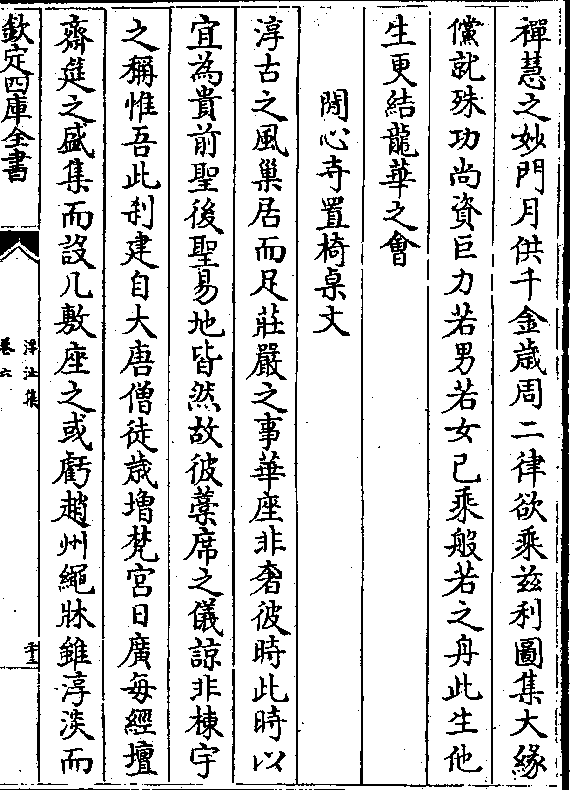 禪慧之妙門月供千金歲周二律欲乘兹利圖集大緣
儻就殊功尚資巨力若男若女已乘般若之舟此生他
生更結龍華之會
開心寺置椅桌文
淳古之風巢居而足莊嚴之事華座非奢彼時此時以
宜為貴前聖後聖易地皆然故彼藁席之儀諒非棟宇
之稱惟吾此刹建自大唐僧徒歲增梵宮日廣每經壇
齋筵之盛集而設几敷座之或虧趙州繩牀雖淳淡而
欽定四庫全書
浮沚集
卷六